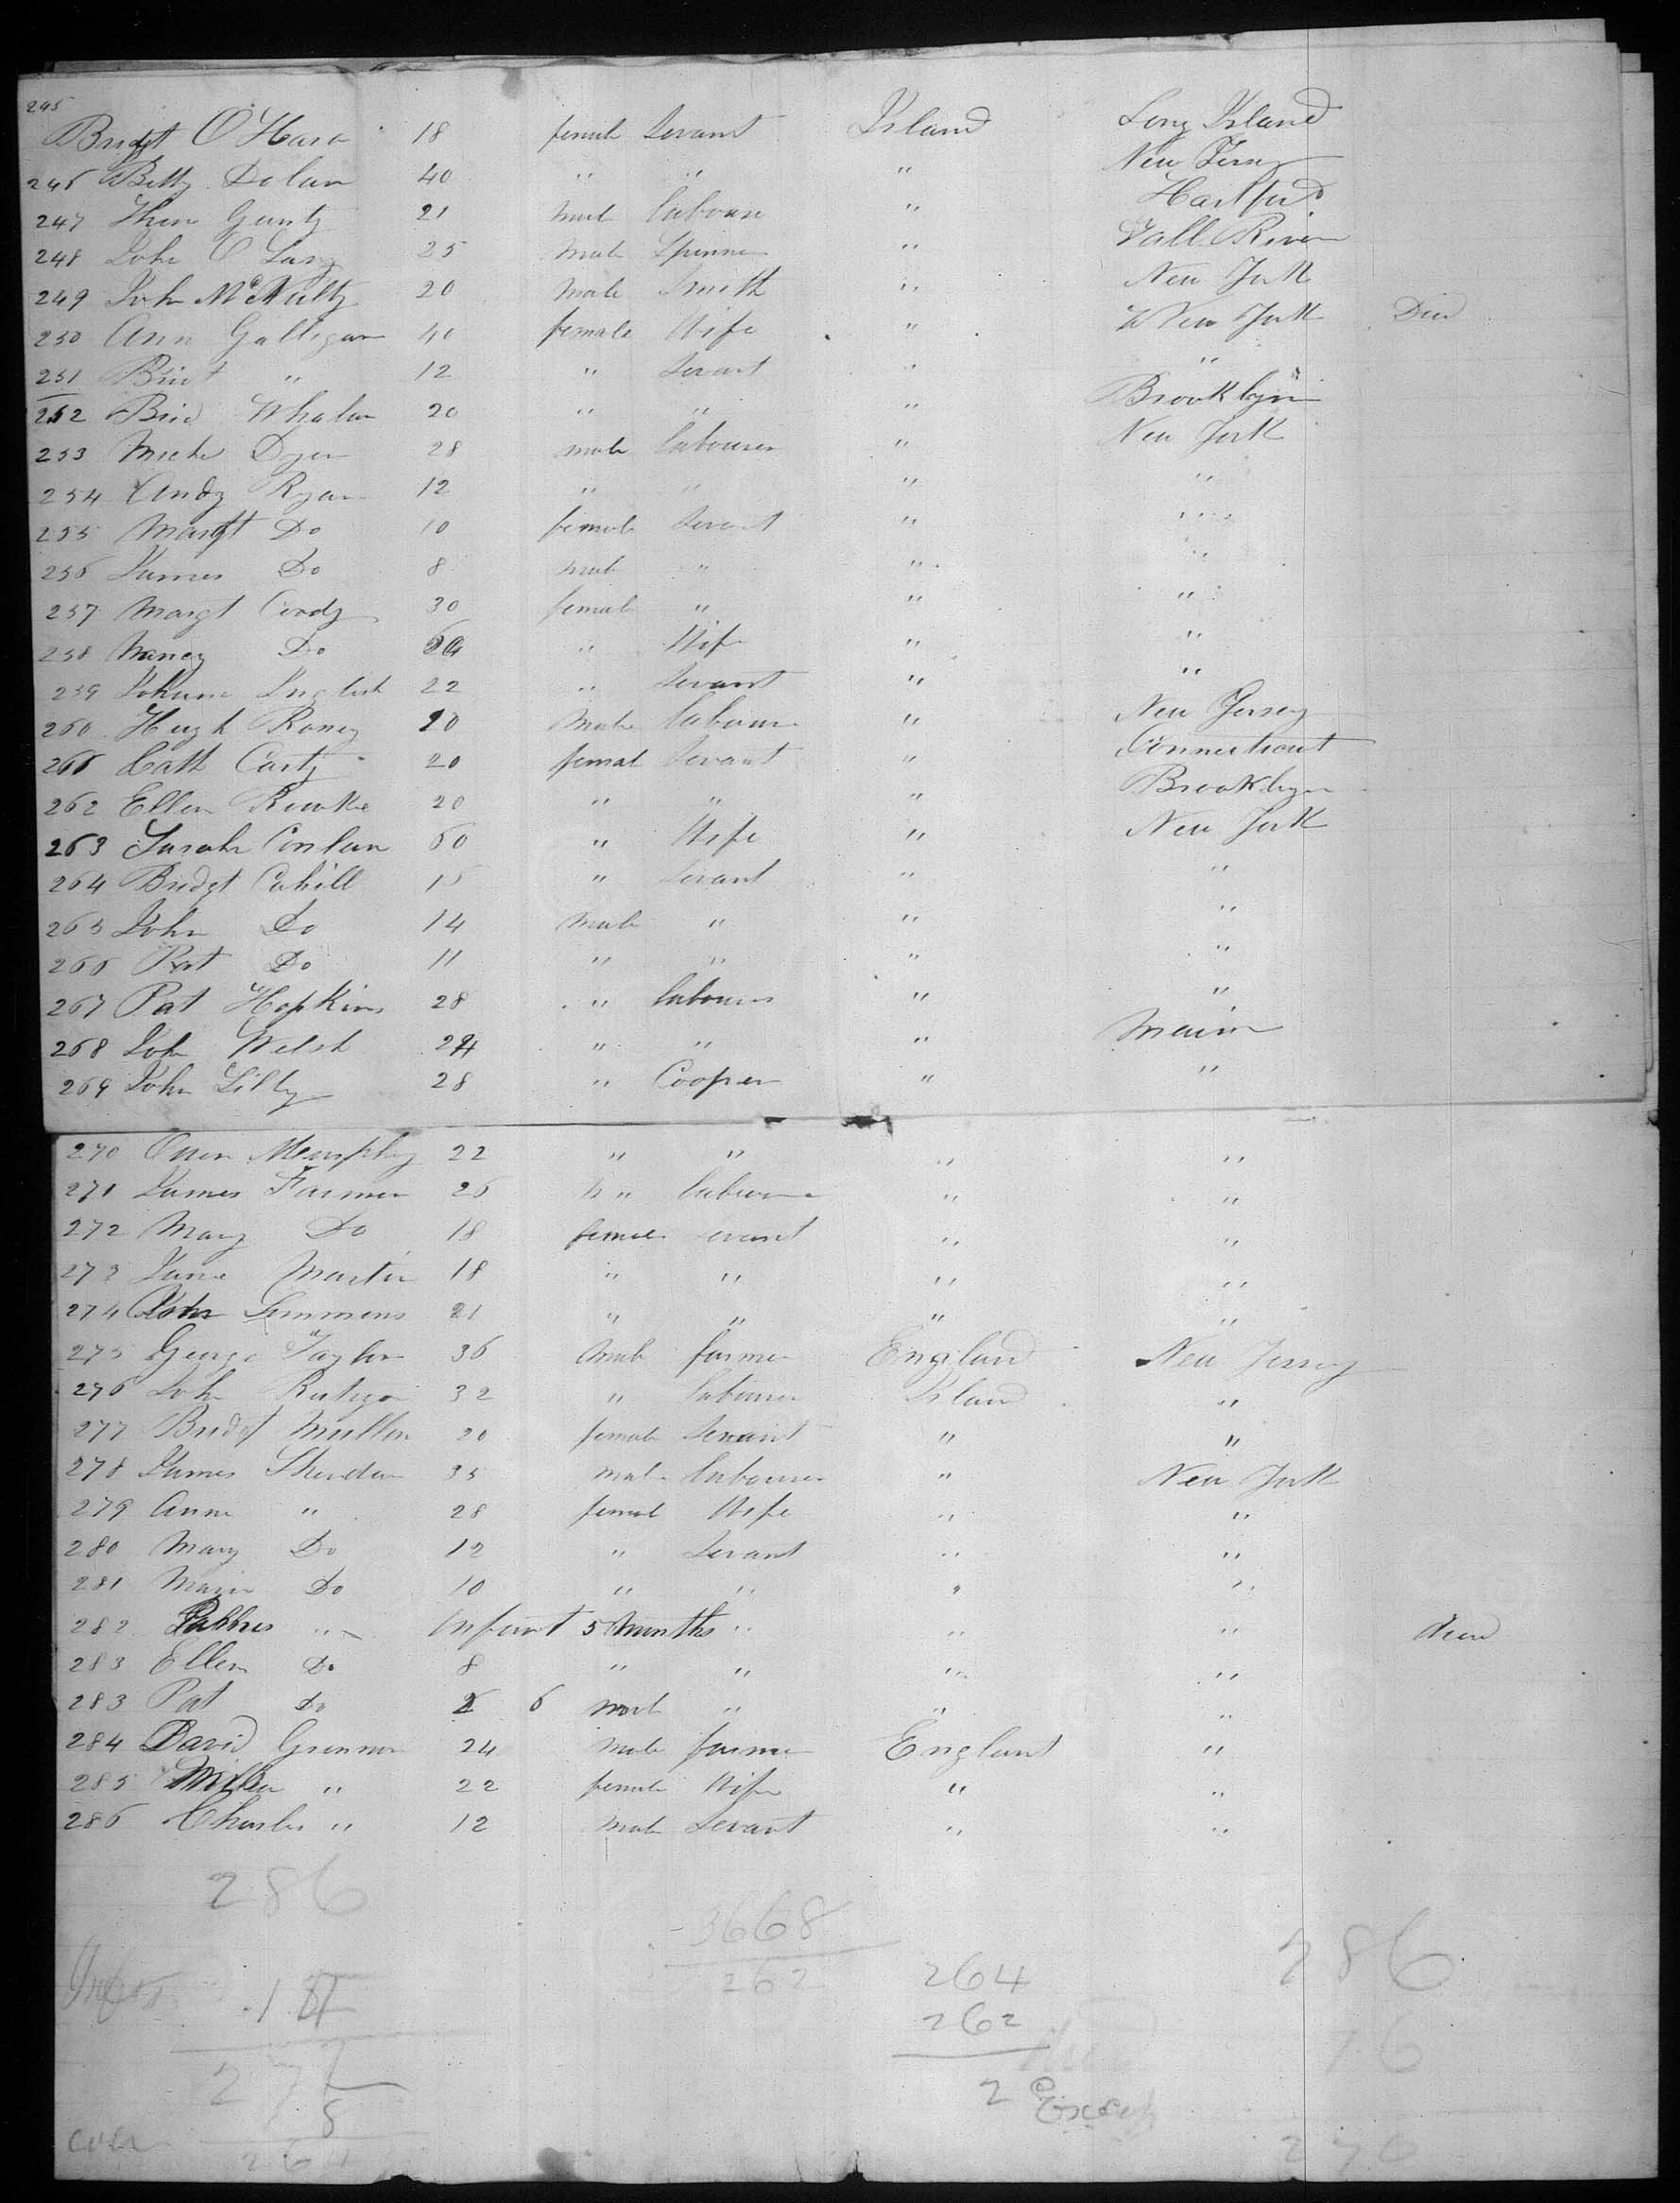 245
Bridgt O'Hara 18 female Servant Ireland Long Island
246 Betty Dolan 40 " " " New Jersey
247 Thom Ganty 21 male labourer " Hartford
248 John O Lary 25 male Spinner " Fall River
249 John McNulty 20 male Smith " New York
250 Ann Galligan 40 female Wife " New York Died
251 Bridt " 12 " Servant " "
252 Brid Whalan 20 " " " Brooklyn
253 Miche Dyer 28 male labourer " New York
254 Andy Ryan 12 " " " "
255 Margt Do 10 female Servant " "
256 James Do 8 male " " "
257 Margt Cordy 30 female " " "
258 Nancy Do 60 " Wife " "
259 English 22 " Servant " "
260 Hugh Roney 20 Male labour " New Jersey
261 Cath Carty 20 femal Servant " Connecticut
262 Ellen Rourke 20 " " " Brooklyn
263 Sarah Conlan 60 " Wife " New York
264 Bridgt Cahill 15 " Servant " "
265 John Do 14 Male " " "
266 Pat Do 11 " " " "
267 Pat Hopkins 28 " labourer " "
268 John Welsh 24 " " " Main
269 John Lilly 28 " Cooper " "
270 Owen Murphy 22 " " " "
271 James Farmer 26 " labourer " "
272 Mary Do 18 female servant " "
273 Jane Martin 18 " " " "
274 Simmens 21 " " " "
275 George Taylor 36 Male farmer England New Jersey
276 John 32 " labourer Ireland "
277 Bridgt Mullen 20 female Servant " "
278 James Sheridan 35 male labourer " New York
279 Anne " 28 femal Wife " "
280 Mary Do 12 " Servant " "
281 Do 10 " " " "
282 " Infant 5 Months " " " died
283 Ellen Do 8 " " " "
283 Pat Do 6 male " " "
284 David Grennon 24 male farmer England "
285 " 22 female Wife " "
286 Charles " 12 male Servant " "
286
3668
262
264
262
2 Excess
286